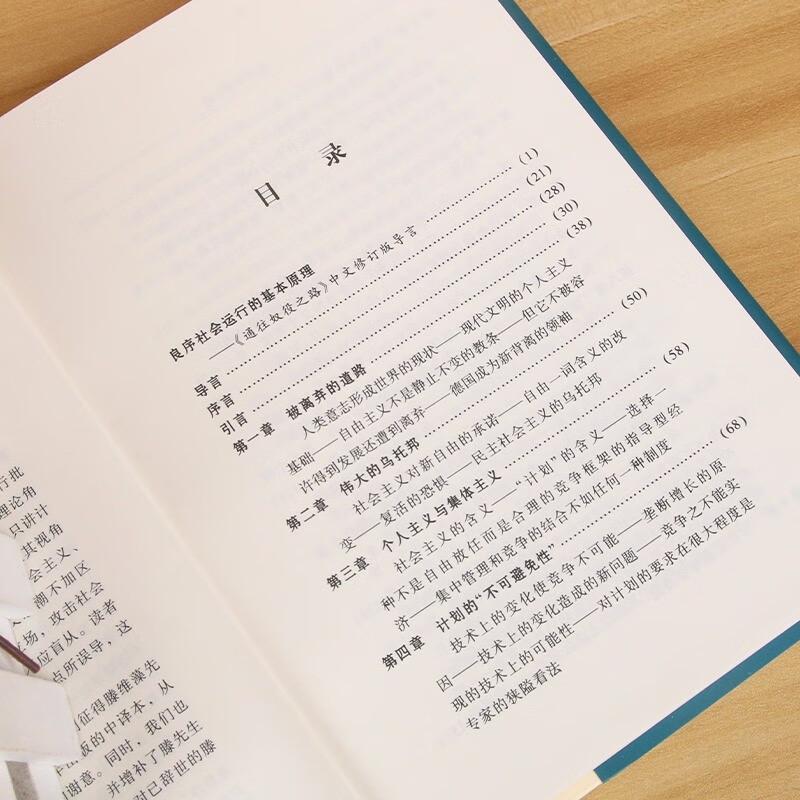 行批
理论角
只讲计
其视角
会主义、
潮不加区
场，攻击社会
应盲从。读者
点所误导，这
征得滕维藻先
出版的中译本，从
谢意。同时，我们也
并增补了滕先生
对已辞世的滕
目 录
良序社会运行的基本原理
——《通往奴役之路》中文修订版导言 (1)
导言 (21)
序言 (28)
引言 (30)
第一章 被离弃的道路 (38)
人类意志形成世界的现状——现代文明的个人主义
基础——自由主义不是静止不变的教条——但它不被容
许得到发展还遭到离弃——德国成为新背离的领袖
第二章 伟大的乌托邦 (50)
社会主义对新自由的承诺——自由一词含义的改
变——复活的恐惧——民主社会主义的乌托邦
第三章 个人主义与集体主义 (58)
社会主义的含义——“计划”的含义——选择一
种不是自由放任而是合理的竞争框架的指导型经
济——集中管理和竞争的结合不如任何一种制度
第四章 计划的“不可避免性” (68)
技术上的变化使竞争不可能——垄断增长的原
因——技术上的变化造成的新问题——竞争之不能实
现的技术上的可能性——对计划的要求在很大程度是
专家的狭隘看法